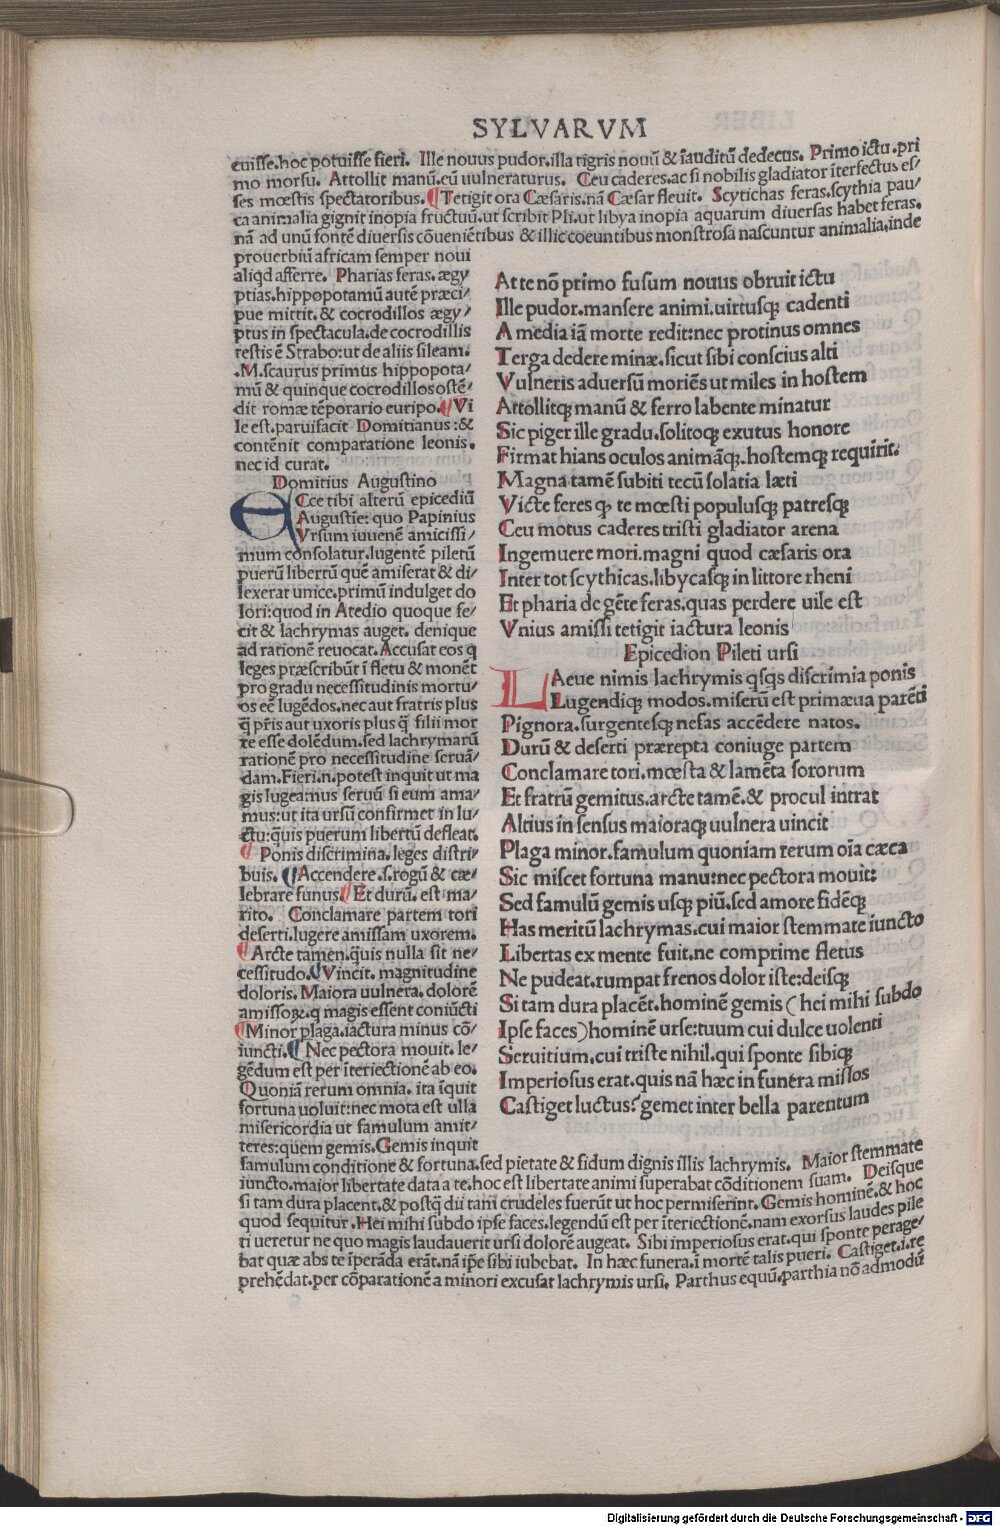 SYLVARVM
euisse.hoc potuisse fieri. Ille nouus pudor.illa tigris nouū & īauditū dedecus. Primo ictu.pri
mo morsu. Attollit manū.eū uulneraturus. Ceu caderes.ac si nobilis gladiator īterfectus es/
ses mœstis spectatoribus. ¶Tetigit ora Cæsaris.nā Cæsar fleuit. Scytichas feras.scythia pau/
ca animalia gignit inopia fructuū.ut scribit Pli.ut libya inopia aquarum diuersas habet feras.
nā ad unū fontē diuersis cōueniētibus & illic coeuntibus monstrosa nascuntur animalia.inde
prouerbiū africam semper noui
aliqd afferre. Pharias feras.ægy
ptias.hippopotamū autē præci/
pue mittit.& cocrodillos ægy/
ptus in spectacula.de cocrodillis
testis ē Strabo:ut de aliis sileam.
.M.scaurus primus hippopota/
mū & quinque cocrodillos ostē/
dit romæ tēporario euripo.¶Vi
le est.paruifacit Domitianus:&
contēnit comparatione leonis.
nec id curat.
Domitius Augustino
ECce tibi alterū epicediū
Augustīe:quo Papinius
Vrsum iuuenē amicissi/
mum consolatur.lugentē piletū
puerū libertū quē amiserat & di/
lexerat unice.primū indulget do
lori:quod in Atedio quoque fe/
cit & lachrymas auget. denique
ad rationē reuocat.Accusat eos q
leges præscribūt ī fletu & monēt
pro gradu necessitudinis mortu/
os eē lugēdos.nec aut fratris plus
q̄ p̄ris aut uxoris plus q̄ filii mor
te esse dolēdum.sed lachrymarū
rationē pro necessitudine seruā/
dam.Fieri.n.potest inquit ut ma
gis lugeamus seruū si eum ama/
mus:ut ita ursū confirmet in lu/
ctu:q̄uis puerum libertū defleat.
¶ Ponis discrimina.leges distri/
buis. ¶Accendere.s.rogū & cæ/
lebrare funus.¶Et durū. est ma/
rito. Conclamare partem tori
deserti.lugere amissam uxorem.
¶Arcte tamen.q̄uis nulla sit ne/
cessitudo.¶Vincit. magnitudine
doloris. Maiora uulnera. dolorē
amissoꝝ.q magis essent coniūcti
¶Minor plaga.iactura minus cō/
iuncti.¶ Nec pectora mouit. le/
gēdum est per īteriectionē ab eo.
Quoniā rerum omnia. ita īquit
fortuna uoluit:nec mota est ulla
misericordia ut famulum amit/
teres:quem gemis. Gemis inquit
At te nō primo fusum nouus obruit ictu
Ille pudor.mansere animi.uirtusq; cadenti
A media iā morte redit:nec protinus omnes
Terga dedere minæ.sicut sibi conscius alti
Vulneris aduersū moriēs ut miles in hostem
Attollitq; manū & ferro labente minatur
Sic piger ille gradu.solitoq; exutus honore
Firmat hians oculos animāq;.hostemq; requirit.
Magna tamē subiti tecū solatia læti
Victe feres q, te mœsti populusq; patresq;
Ceu motus caderes tristi gladiator arena
Ingemuere mori.magni quod cæsaris ora
Inter tot scythicas.libycasq; in littore rheni
Et pharia de gēte feras.quas perdere uile est
Vnius amissi tetigit iactura leonis
Epicedion Pileti ursi
LAeue nimis lachrymis qsqs discrimia ponis
Lugendiq; modos.miserū est primæua parēti
Pignora.surgentesq; nefas accēdere natos.
Durū & deserti prærepta coniuge partem
Conclamare tori.mœsta & lamēta sororum
Et fratrū gemitus.arcte tamē.& procul intrat
Altius in sensus maioraq; uulnera uincit
Plaga minor.famulum quoniam rerum oīa cæca
Sic miscet fortuna manu:nec pectora mouit:
Sed famulū gemis usq; piū.sed amore fidēq;
Has meritū lachrymas.cui maior stemmate iuncto
Libertas ex mente fuit.ne comprime fletus
Ne pudeat.rumpat frenos dolor iste:deisq;
Si tam dura placēt.hominē gemis (hei mihi subdo
Ipse faces)hominē urse:tuum cui dulce uolenti
Seruitium.cui triste nihil.qui sponte sibiq;
Imperiosus erat.quis nā hæc in funera missos
Castiget luctus? gemet inter bella parentum
famulum conditione & fortuna.sed pietate & fidum dignis illis lachrymis. Maior stemmate
iuncto.maior libertate data a te.hoc est libertate animi superabat cōditionem suam. Deisque
si tam dura placent.& postq̄ dii tam crudeles fuerūt ut hoc permiserint. Gemis hominē.& hoc
quod sequitur.Hei mihi subdo ipse faces.legendū est per īteriectionē.nam exorsus laudes pile
ti ueretur ne quo magis laudauerit ursi dolorē augeat. Sibi imperiosus erat.qui sponte perage/
bat quæ abs te īperāda erāt.nā īpe sibi iubebat. In hæc funera.ī mortē talis pueri. Castiget.i.re
prehēdat.per cōparationē a minori excusat lachrymis ursi. Parthus equū.parthia nō admodū
Digitalisierung gefördert durch die Deutsche Forschungsgemeinschaft - DFG